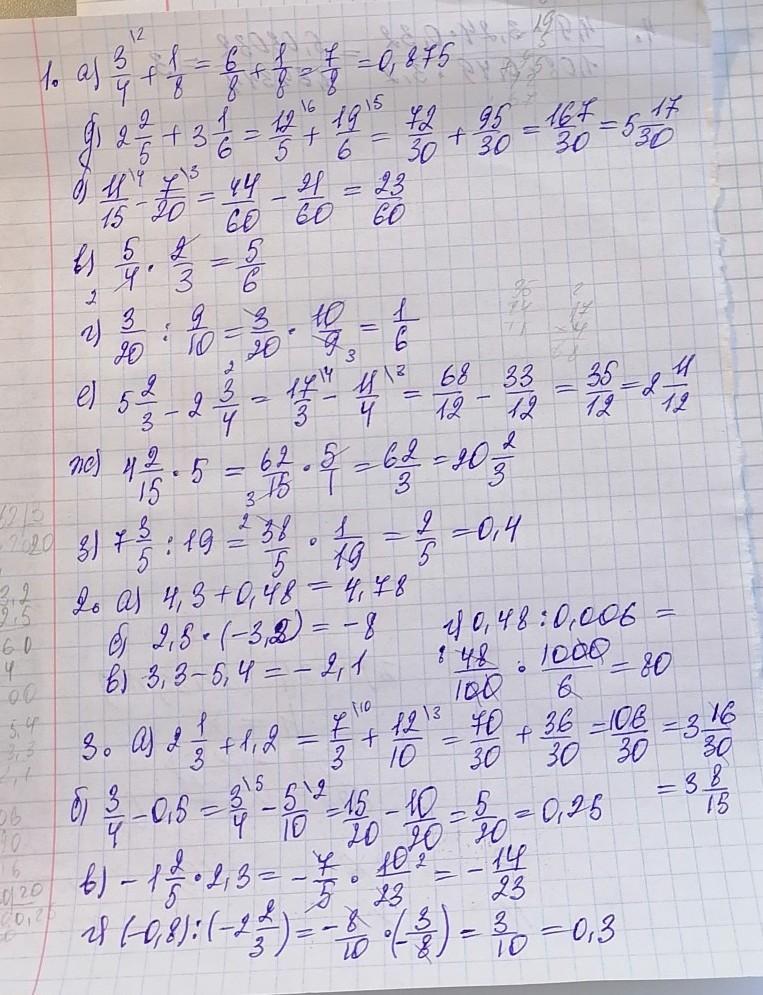 1. а) 3/4 \2 + 1/8 = 6/8 + 1/8 = 7/8 = 0,875
д) 2 2/5 + 3 1/6 = 12/5 \6 + 19/6 \5 = 72/30 + 95/30 = 167/30 = 5 17/30
б) 11/15 \4 - 7/20 \3 = 44/60 - 21/60 = 23/60
в) 5/4 · 2/3 = 5/6
2
г) 3/20 : 9/10 = 3/20 · 10/9 = 1/6
2 3
е) 5 2/3 - 2 3/4 = 17/3 \4 - 11/4 \3 = 68/12 - 33/12 = 35/12 = 2 11/12
ж) 4 2/15 · 5 = 62/15 · 5/1 = 62/3 = 20 2/3
3
з) 7 3/5 : 19 = 2 38/5 · 1/19 = 2/5 = 0,4
2. а) 4,3 + 0,48 = 4,78
б) 2,5 · (-3,2) = -8
г) 0,48 : 0,006 =
в) 3,3 - 5,4 = -2,1
8 48/100 · 1000/6 = 80
3. а) 2 1/3 + 1,2 = 7/3 \10 + 12/10 \3 = 70/30 + 36/30 = 106/30 = 3 16/30
= 3 8/15
б) 3/4 \5 - 0,5 = 3/4 \5 - 5/10 \2 = 15/20 - 10/20 = 5/20 = 0,25
в) -1 2/5 · 2,3 = -7/5 · 10/23 2 = -14/23
г) (-0,8) : (-2 2/3) = -8/10 · (-3/8) = 3/10 = 0,3